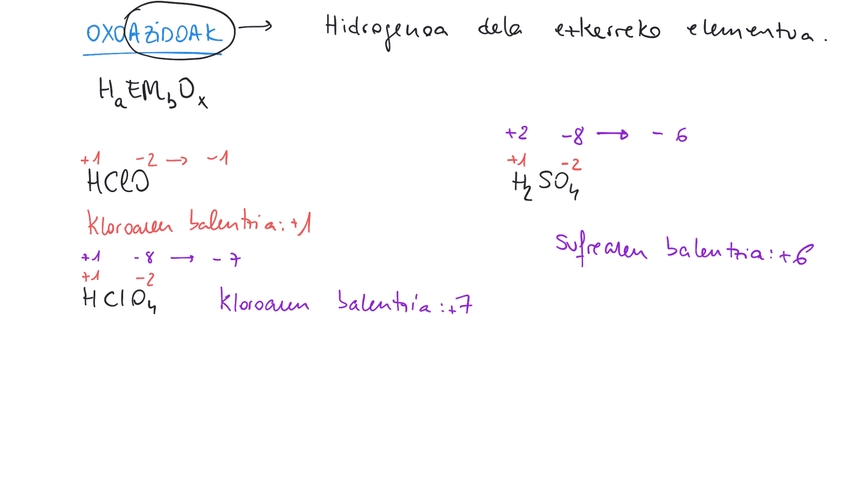 OXOAZIDOAK → Hidrogenoa dela ezkerreko elementua.
HaEMbOx
+1 -2 → -1
HClO
Kloroaren balentzia: +1
+1 -8 → -7
+1 -2
HClO4
Kloroaren balentzia: +7
+2 -8 → - 6
+1 -2
H2SO4
Sufrearen balentzia: +6